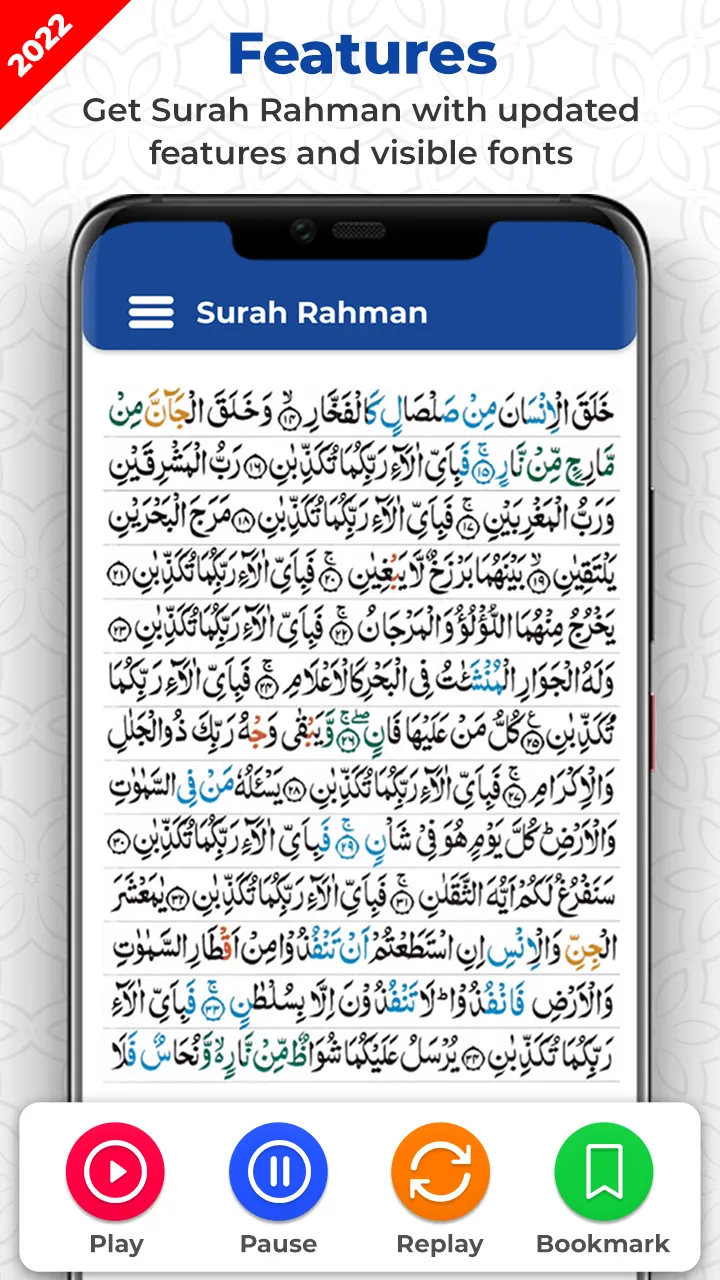 2022
Features
Get Surah Rahman with updated
features and visible fonts
Surah Rahman
خَلَقَ الْاِنْسَانَ مِنْ صَلْصَالٍ كَالْفَخَّارِ ۙ﴿۱۴﴾ وَ خَلَقَ الْجَآنَّ مِنْ
مَّارِجٍ مِّنْ نَّارٍ ۚ﴿۱۵﴾ فَبِاَىِّ اٰلَآءِ رَبِّكُمَا تُكَذِّبٰنِ ﴿۱۶﴾ رَبُّ الْمَشْرِقَيْنِ
وَ رَبُّ الْمَغْرِبَيْنِ ۚ﴿۱۷﴾ فَبِاَىِّ اٰلَآءِ رَبِّكُمَا تُكَذِّبٰنِ ﴿۱۸﴾ مَرَجَ الْبَحْرَيْنِ
يَلْتَقِيٰنِ ۙ﴿۱۹﴾ بَيْنَهُمَا بَرْزَخٌ لَّا يَبْغِيٰنِ ۚ﴿۲۰﴾ فَبِاَىِّ اٰلَآءِ رَبِّكُمَا تُكَذِّبٰنِ ﴿۲۱﴾
يَخْرُجُ مِنْهُمَا اللُّؤْلُؤُ وَ الْمَرْجَانُ ۚ﴿۲۲﴾ فَبِاَىِّ اٰلَآءِ رَبِّكُمَا تُكَذِّبٰنِ ﴿۲۳﴾
وَلَهُ الْجَوَارِ الْمُنْشَئٰتُ فِى الْبَحْرِ كَالْاَعْلَامِ ۚ﴿۲۴﴾ فَبِاَىِّ اٰلَآءِ رَبِّكُمَا
تُكَذِّبٰنِ ﴿۲۵﴾ۧ كُلُّ مَنْ عَلَيْهَا فَانٍ ۚۖ﴿۲۶﴾ وَّ يَبْقٰى وَجْهُ رَبِّكَ ذُو الْجَلٰلِ
وَ الْاِكْرَامِ ۚ﴿۲۷﴾ فَبِاَىِّ اٰلَآءِ رَبِّكُمَا تُكَذِّبٰنِ ﴿۲۸﴾ يَسْـَٔلُهٗ مَنْ فِى السَّمٰوٰتِ
وَ الْاَرْضِ ؕ كُلَّ يَوْمٍ هُوَ فِىْ شَاْنٍ ۚ﴿۲۹﴾ فَبِاَىِّ اٰلَآءِ رَبِّكُمَا تُكَذِّبٰنِ ﴿۳۰﴾
سَنَفْرُغُ لَكُمْ اَيُّهَ الثَّقَلٰنِ ۚ﴿۳۱﴾ فَبِاَىِّ اٰلَآءِ رَبِّكُمَا تُكَذِّبٰنِ ﴿۳۲﴾ يٰمَعْشَرَ
الْجِنِّ وَ الْاِنْسِ اِنِ اسْتَطَعْتُمْ اَنْ تَنْفُذُوْا مِنْ اَقْطَارِ السَّمٰوٰتِ
وَ الْاَرْضِ فَانْفُذُوْا ؕ لَا تَنْفُذُوْنَ اِلَّا بِسُلْطٰنٍ ۚ﴿۳۳﴾ فَبِاَىِّ اٰلَآءِ
رَبِّكُمَا تُكَذِّبٰنِ ﴿۳۴﴾ يُرْسَلُ عَلَيْكُمَا شُوَاظٌ مِّنْ نَّارٍ ۙ وَّ نُحَاسٌ فَلَا
Play
Pause
Replay
Bookmark